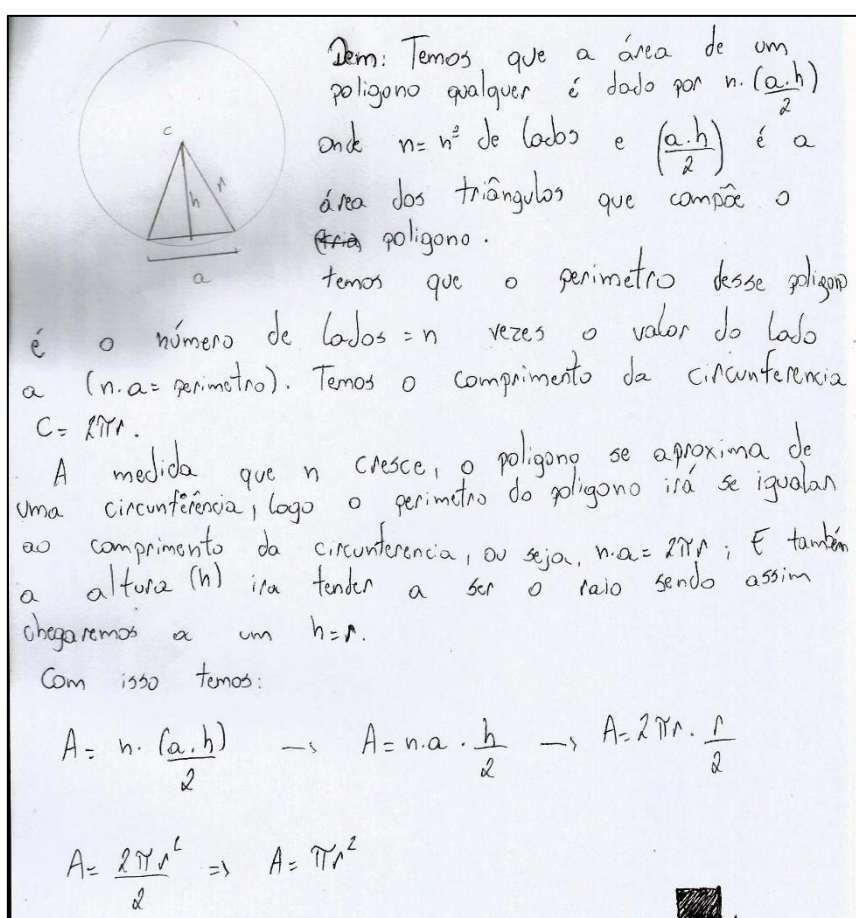 Dem: Temos que a área de um
poligono qualquer é dado por n. (a.h)/2
C
onde n= nº de lados e (a.h/2) é a
h r
área dos triângulos que compõe o
(tria) poligono.
a
temos que o perimetro desse poligono
é o número de lados = n vezes o valor do lado
a (n.a= perimetro). Temos o comprimento da circunferencia
C= 2πr.
A medida que n cresce, o poligono se aproxima de
uma circunferência, logo o perimetro do poligono irá se igualar
ao comprimento da circunferencia, ou seja, n.a= 2πr ; E também
a altura (h) ira tender a ser o raio sendo assim
chegaremos a um h=r.
Com isso temos:
A= n. (a.h)/2 → A= n.a . h/2 → A= 2πr. r/2
A= 2πr²/2 => A= πr²